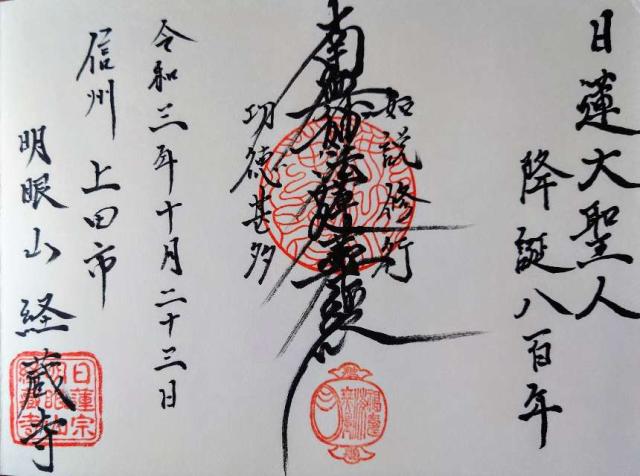 日蓮大聖人
降誕八百年
如説修行
南無妙法蓮華経
功徳甚多
令和三年十月二十三日
信州 上田市
明眼山 経蔵寺
日蓮宗
明眼山
経蔵寺